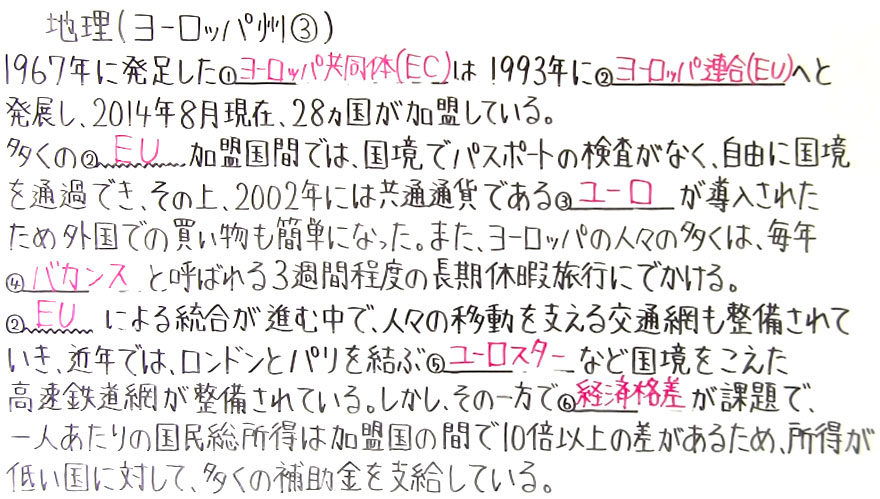 地理(ヨーロッパ州③)
1967年に発足した①ヨーロッパ共同体(EC)は1993年に②ヨーロッパ連合(EU)へと
発展し、2014年8月現在、28ヵ国が加盟している。
多くの②EU加盟国間では、国境でパスポートの検査がなく、自由に国境
を通過でき、その上、2002年には共通通貨である③ユーロが導入された
ため外国での買い物も簡単になった。また、ヨーロッパの人々の多くは、毎年
④バカンスと呼ばれる3週間程度の長期休暇旅行にでかける。
②EUによる統合が進む中で、人々の移動を支える交通網も整備されて
いき、近年では、ロンドンとパリを結ぶ⑤ユーロスターなど国境をこえた
高速鉄道網が整備されている。しかし、その一方で⑥経済格差が課題で、
一人あたりの国民総所得は加盟国の間で10倍以上の差があるため、所得が
低い国に対して、多くの補助金を支給している。